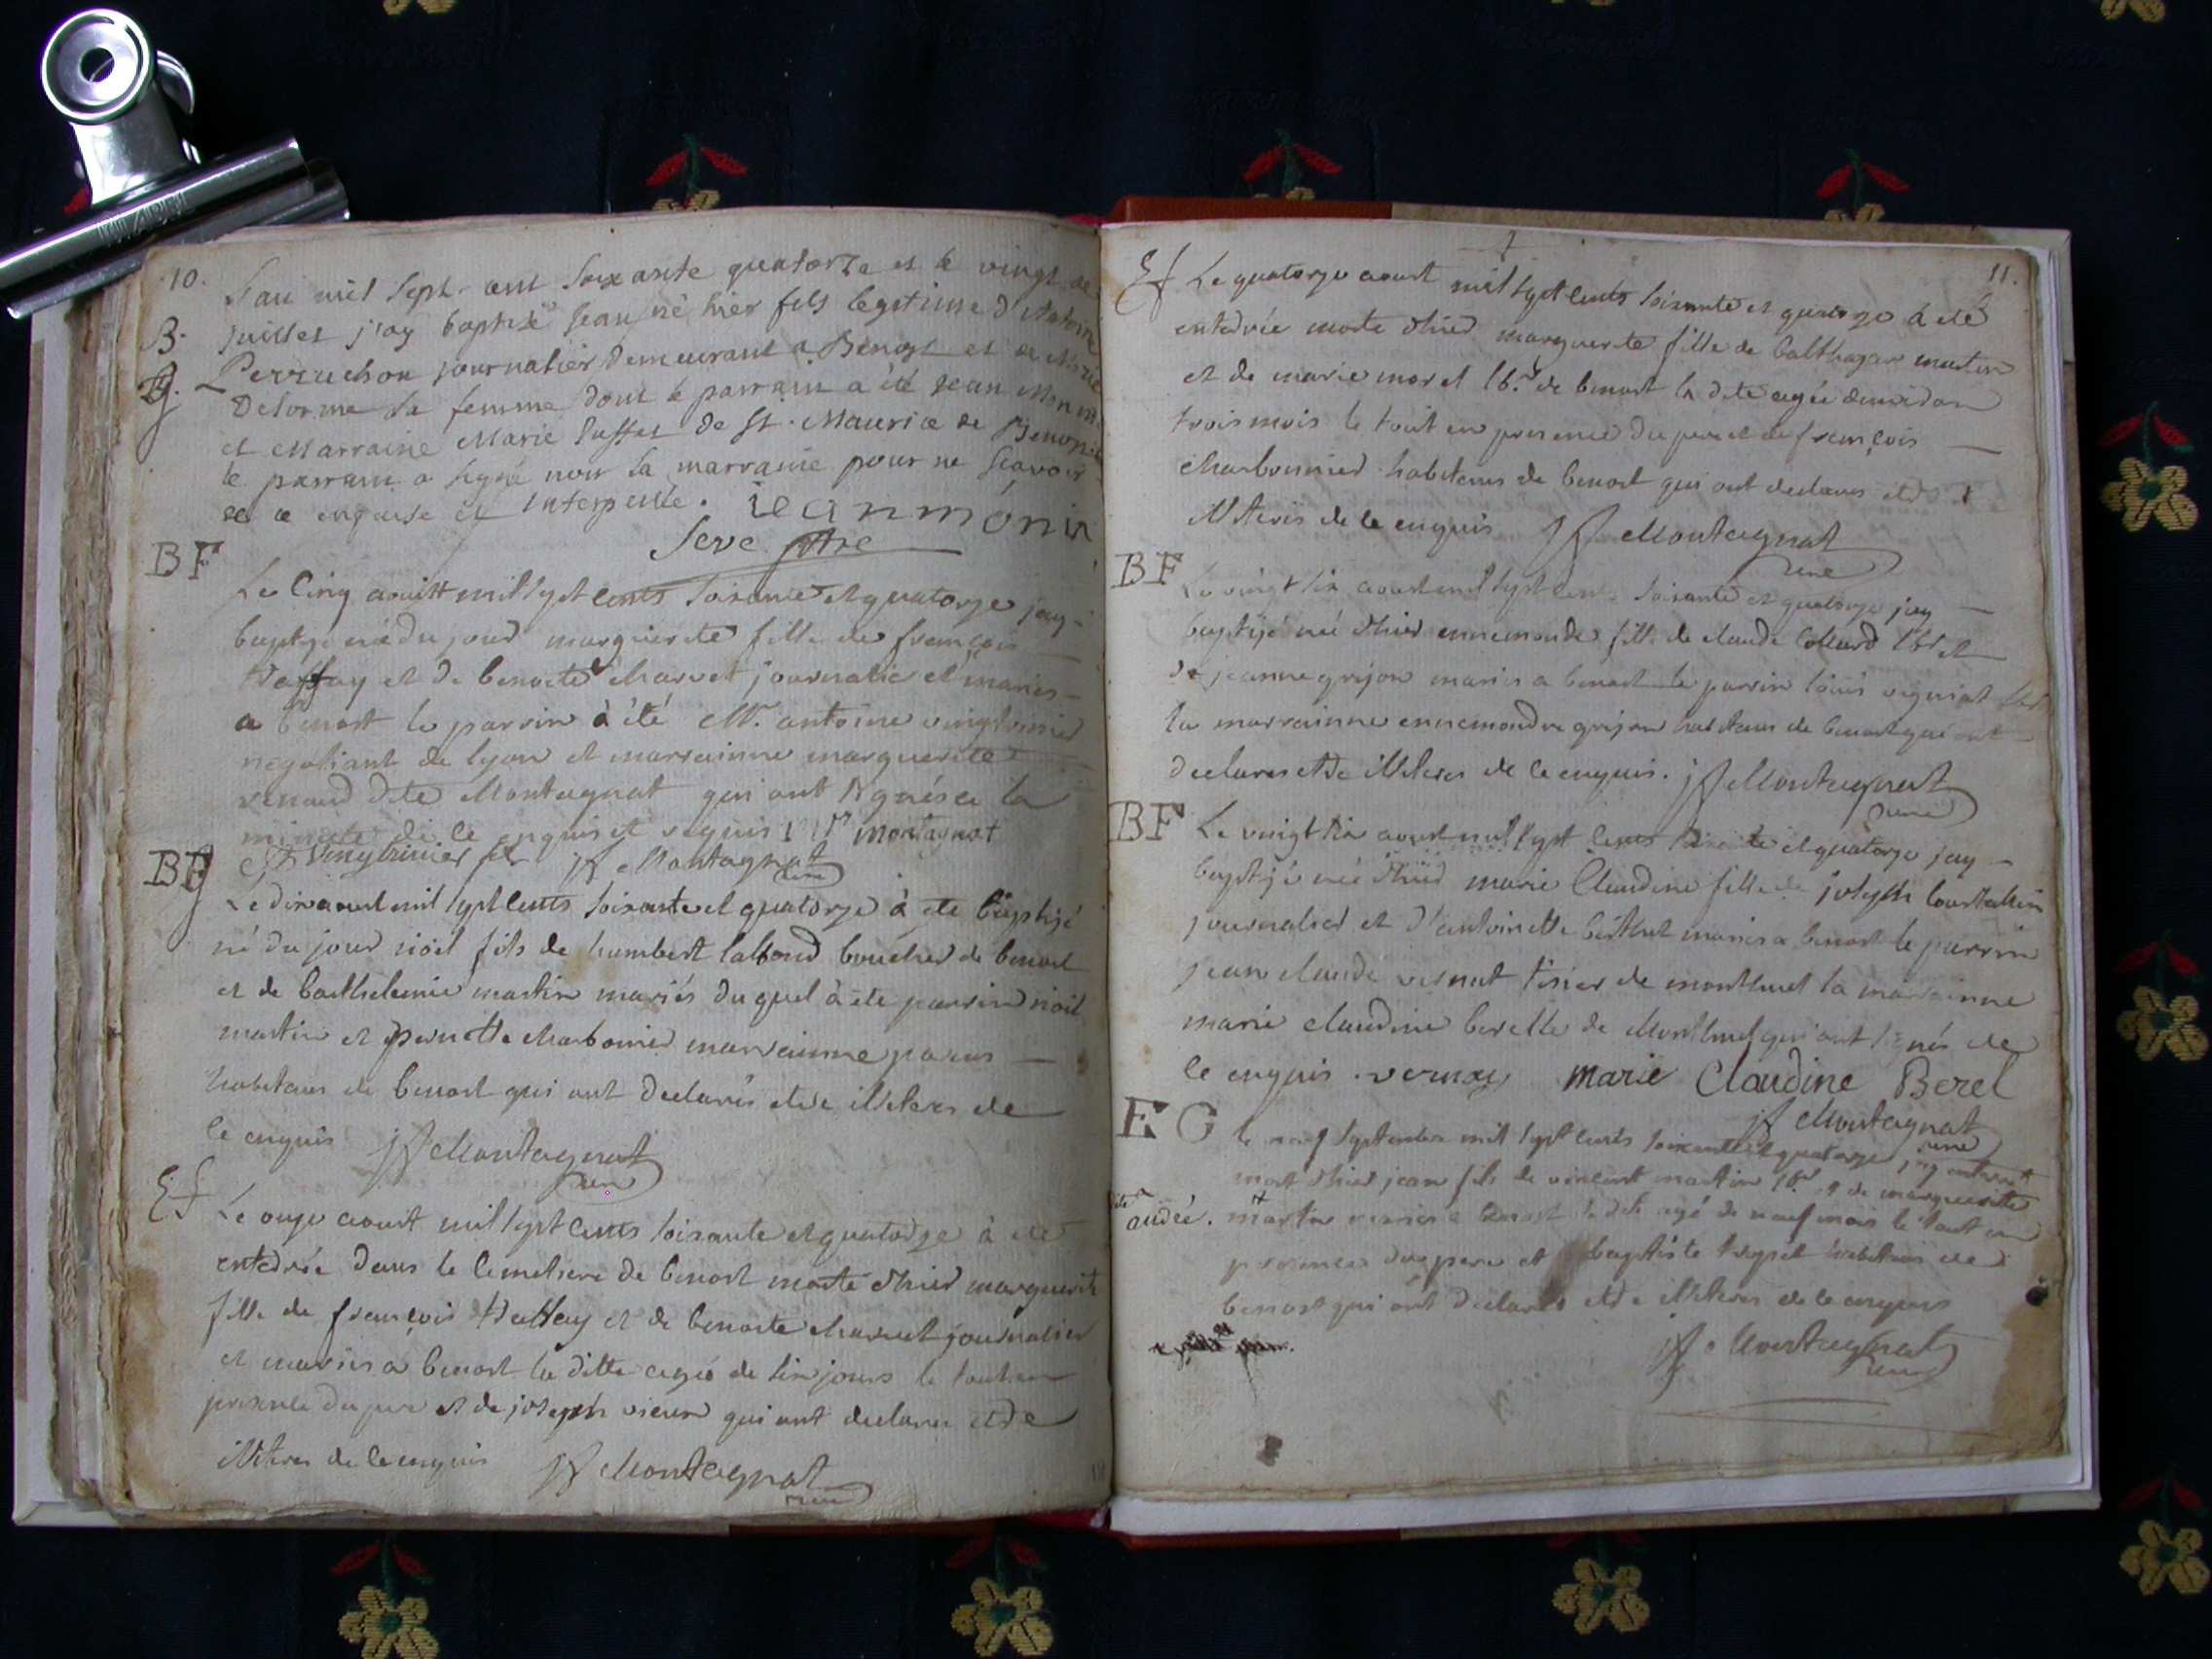 10.
L'an mil sept cent soixante quatorze et le vingt de
B. juillet j'ay baptisé jean né hier fils legitime d'Antoine
g. Perruchon journalier demeurant a Benost et de Marie
Delorme sa femme dont le parrain a été jean Monin
et Marraine Marie de St. Maurice de Benost
le parrain a signé non la marraine pour ne sçavoir
de ce enquise et interpellée. jean mónin
Seve ptre
BF
Le cinq aoust mil sept cents soixante et quatorze jay
baptizé née du jour marguerite fille de françois
et de benoite charvet journalie et mariés
a benost le parrin à été Mr. antoine vingtrinier
negotiant de lyon et marrainne marguerite
renaud dite Montagnat qui ont signés a la
minute de ce enquis et requis montagnat
vingtrinier fr Montagnat
curé
BG
Le dix aoust mil sept cents soixante et quatorze à été baptizé
né du jour nöel fils de humbert boucher de benost
et de barthelemie martin mariés du quel à été parrin nöel
martin et pernette charbonnier marrainne
habitans de benost qui ont declarés etre illiteres de
ce enquis Montagnat
curé
Ef
Le onze aoust mil sept cents soixante et quatorze à été
enterrée dans le cemetiere de benost morte d'hier marguerite
fille de françois et de benoite charvet journalier
et mariés a benost la ditte agée de six jours le tout en
presence du pere et de joseph vieux qui ont declarés etre
illiteres de ce enquis Montagnat
curé
11.
Ef Le quatorze aoust mil sept cents soixante et quatorze à eté
enterrée morte d'hier marguerite fille de balthazar martin
et de marie morel lb.r de benost la dite agée
trois mois le tout en presence du pere et de françois
charbonnier habitans de benost qui ont declarés etre
illiteres de ce enquis Montagnat
curé
BF
Le vingt six aoust mil sept cents soixante et quatorze jay
baptizé née d'hier ennemonde fille de claude Collard lbr et
de jeanne grizon mariés a benost le parrin loüis
la marrainne ennemonde grizon habitans de benost qui ont
declarés etre illiteres de ce enquis. Montagnat
curé
BF
Le vingt six aoust mil sept cents soixante et quatorze jay
baptizé née d'hier marie Claudine fille de joseph
journalier et d'antoinette berthet mariés a benost le parrin
jean claude de montluel la marrainne
marie claudine berelle de Montluel qui ont signés de
ce enquis. vernay marie Claudine Berel
Montagnat
curé
EG
le neuf septembre mil sept cents soixante et quatorze jay enterré
mort d'hier jean fils de vincent martin lb.r et de marguerite
audée. martin mariés a benost le dit agé de neuf mois le tout en
presence du pere et baptiste trepet habitans de
benost qui ont declarés etre illiteres de ce enquis
Montagnat
curé